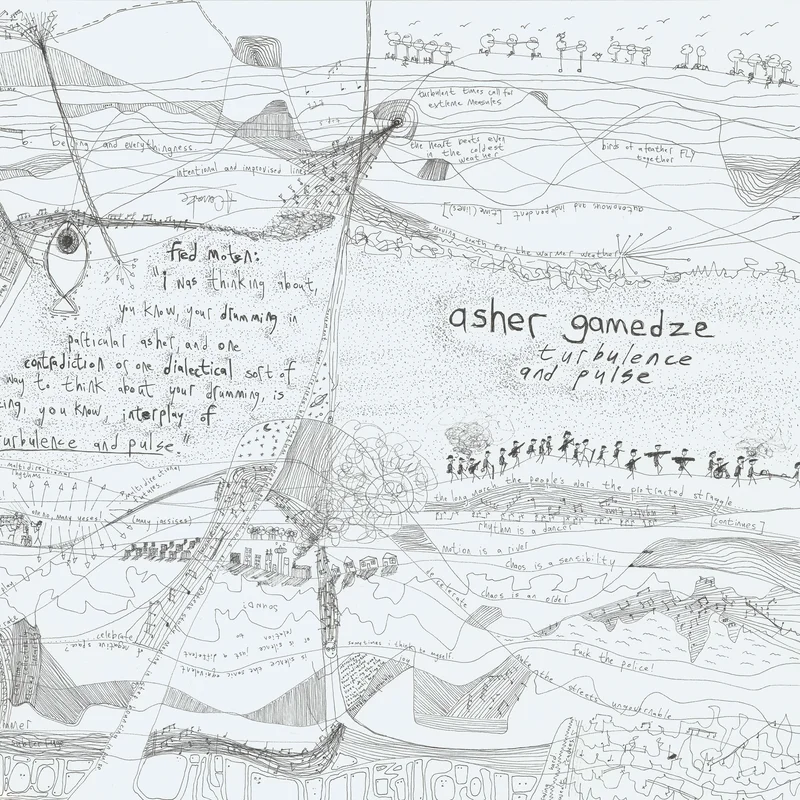 turbulent times call for
extreme measures
being and everythingness
the heart beats even
in the coldest
weather
birds of a feather FLY
together
intentional and improvised lines
autonomous and independent [time(lines)]
moving south for the warmer weather
fred moten:
"i was thinking about,
you know, your drumming in
particular asher, and one
contradiction or one dialectical sort of
way to think about your drumming, is
you know, interplay of
turbulence and pulse."
asher gamedze
turbulence
and pulse
multidirectional
rhythms
multidirectional
the long march, the people's war, the protracted struggle...
[continues]
rhythm is a dancer
motion is a river
chaos is a sensibility
chaos is an order
decelerate
sound?
celebrate
negative space?
is silence the sonic equivalent
or is silence just a different
relation to
sometimes i think to myself
fuck the police!
make the streets ungovernable
subterfuge